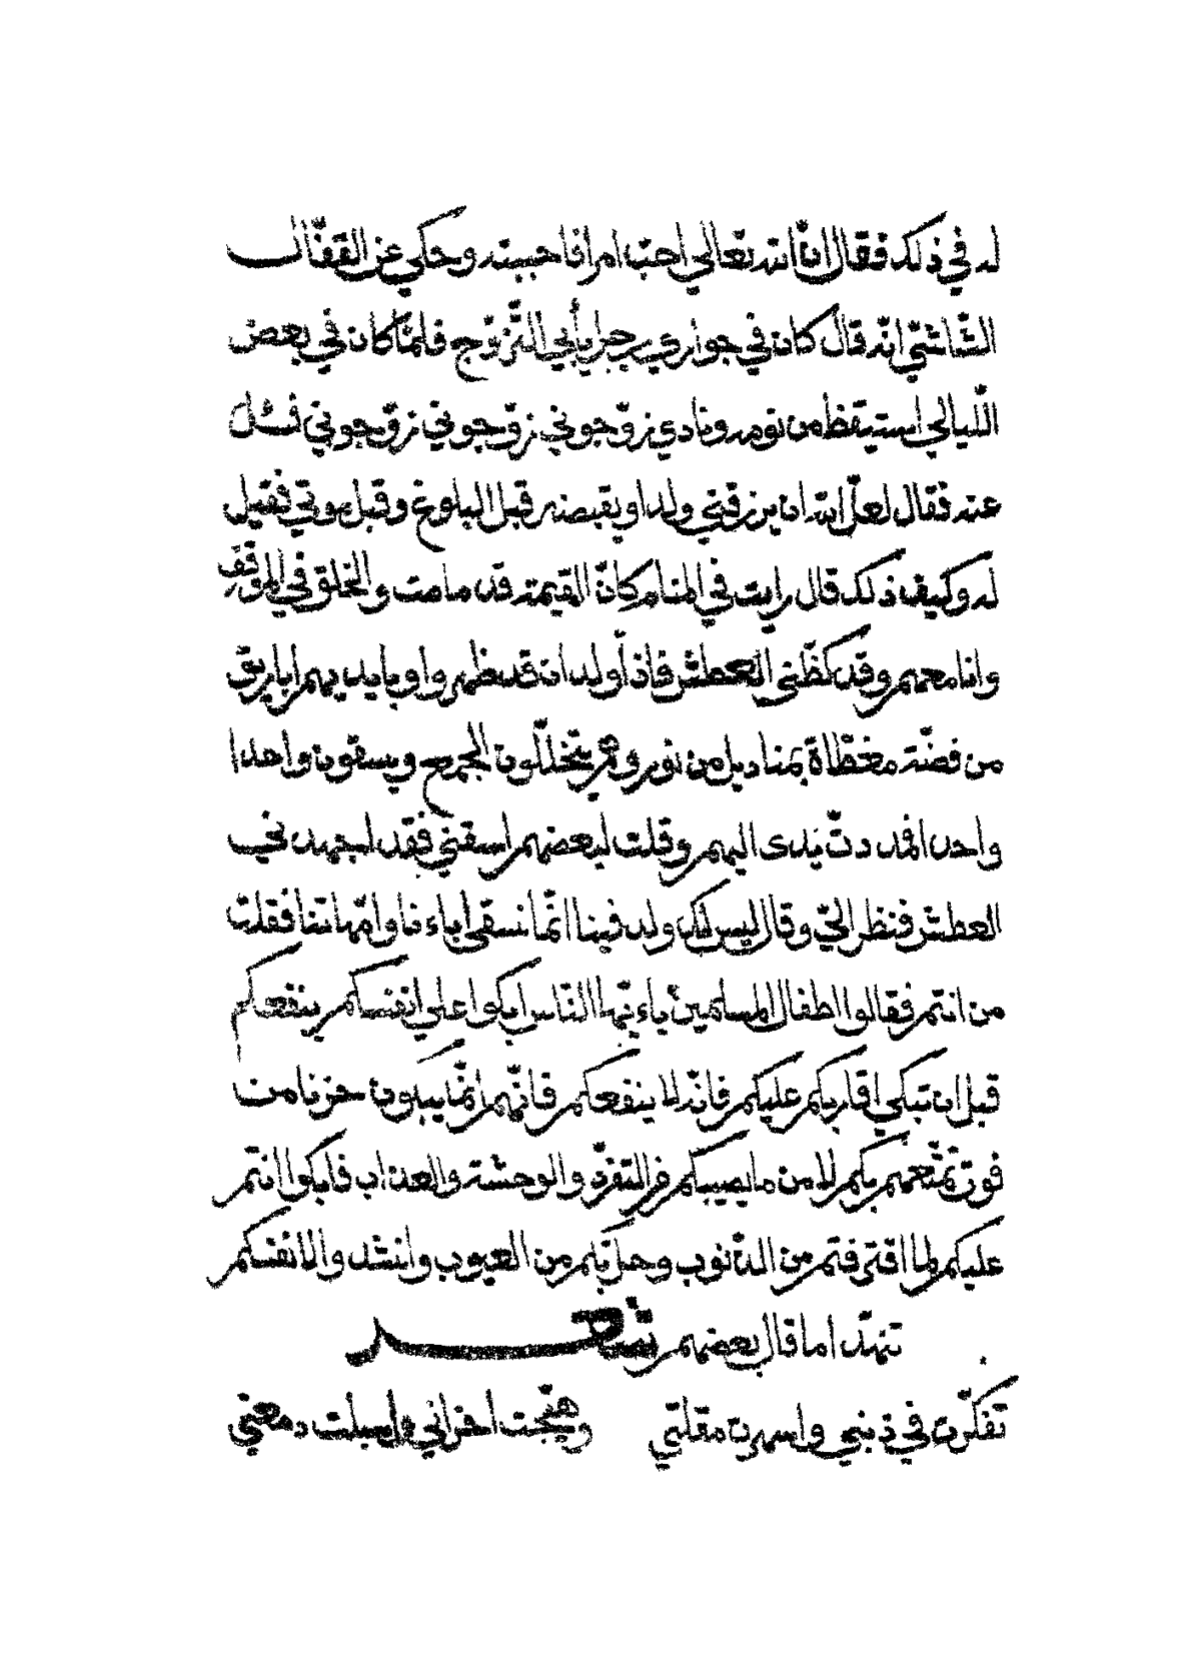 له في ذلك فقال انّ الله تعالى احبّ امرا فاحببته وحكي عن القفّال
الشّاشيّ انّه قال كان في جواري رجل يأبي التّزوّج فلمّا كان في بعض
اللّيالي استيقظ من نومه ونادي زوّجوني زوّجوني زوّجوني فسئل
عنه فقال لعلّ الله ان يرزقني ولدا ويقبضه قبل البلوغ وقبل موتي فقيل
له وكيف ذلك قال رايت في المنام كانّ القيمة قد قامت والخلق في الموقف
وانا معهم وقد كظّني العطش فاذا ولدان قد ظهروا وبايديهم اباريق
من فضّة مغطّاة بمناديل من نور وهم يتخللّون الجمع ويسقون واحدا
واحدا فمددتّ يدى اليهم وقلت لبعضهم اسقني فقد اجهدني
العطش فنظر اليّ وقال ليس لك ولد فينا انّما نسقي اباءنا وامّهاتنا فقلت
من انتم فقالوا اطفال المسلمين ياءيّها النّاس ابكوا علي انفسكم ينفعكم
قبل ان تبكي اقاربكم عليكم فانّه لا ينفعكم فانّهم انّما يبكون حزنا من
فوت تمتّعهم بكم لا من ما يصيبكم من التفرّد والوحشة والعذاب فابكوا انتم
عليكم لما اقترفتم من الذّنوب وحلّ بكم من العيوب وانشدوا لانفسكم
تنهّدا ما قال بعضهم شعر
تفكّرت في ذنبي واسهرت مقلتي وهيّجت احزاني واسبلت دمعتي